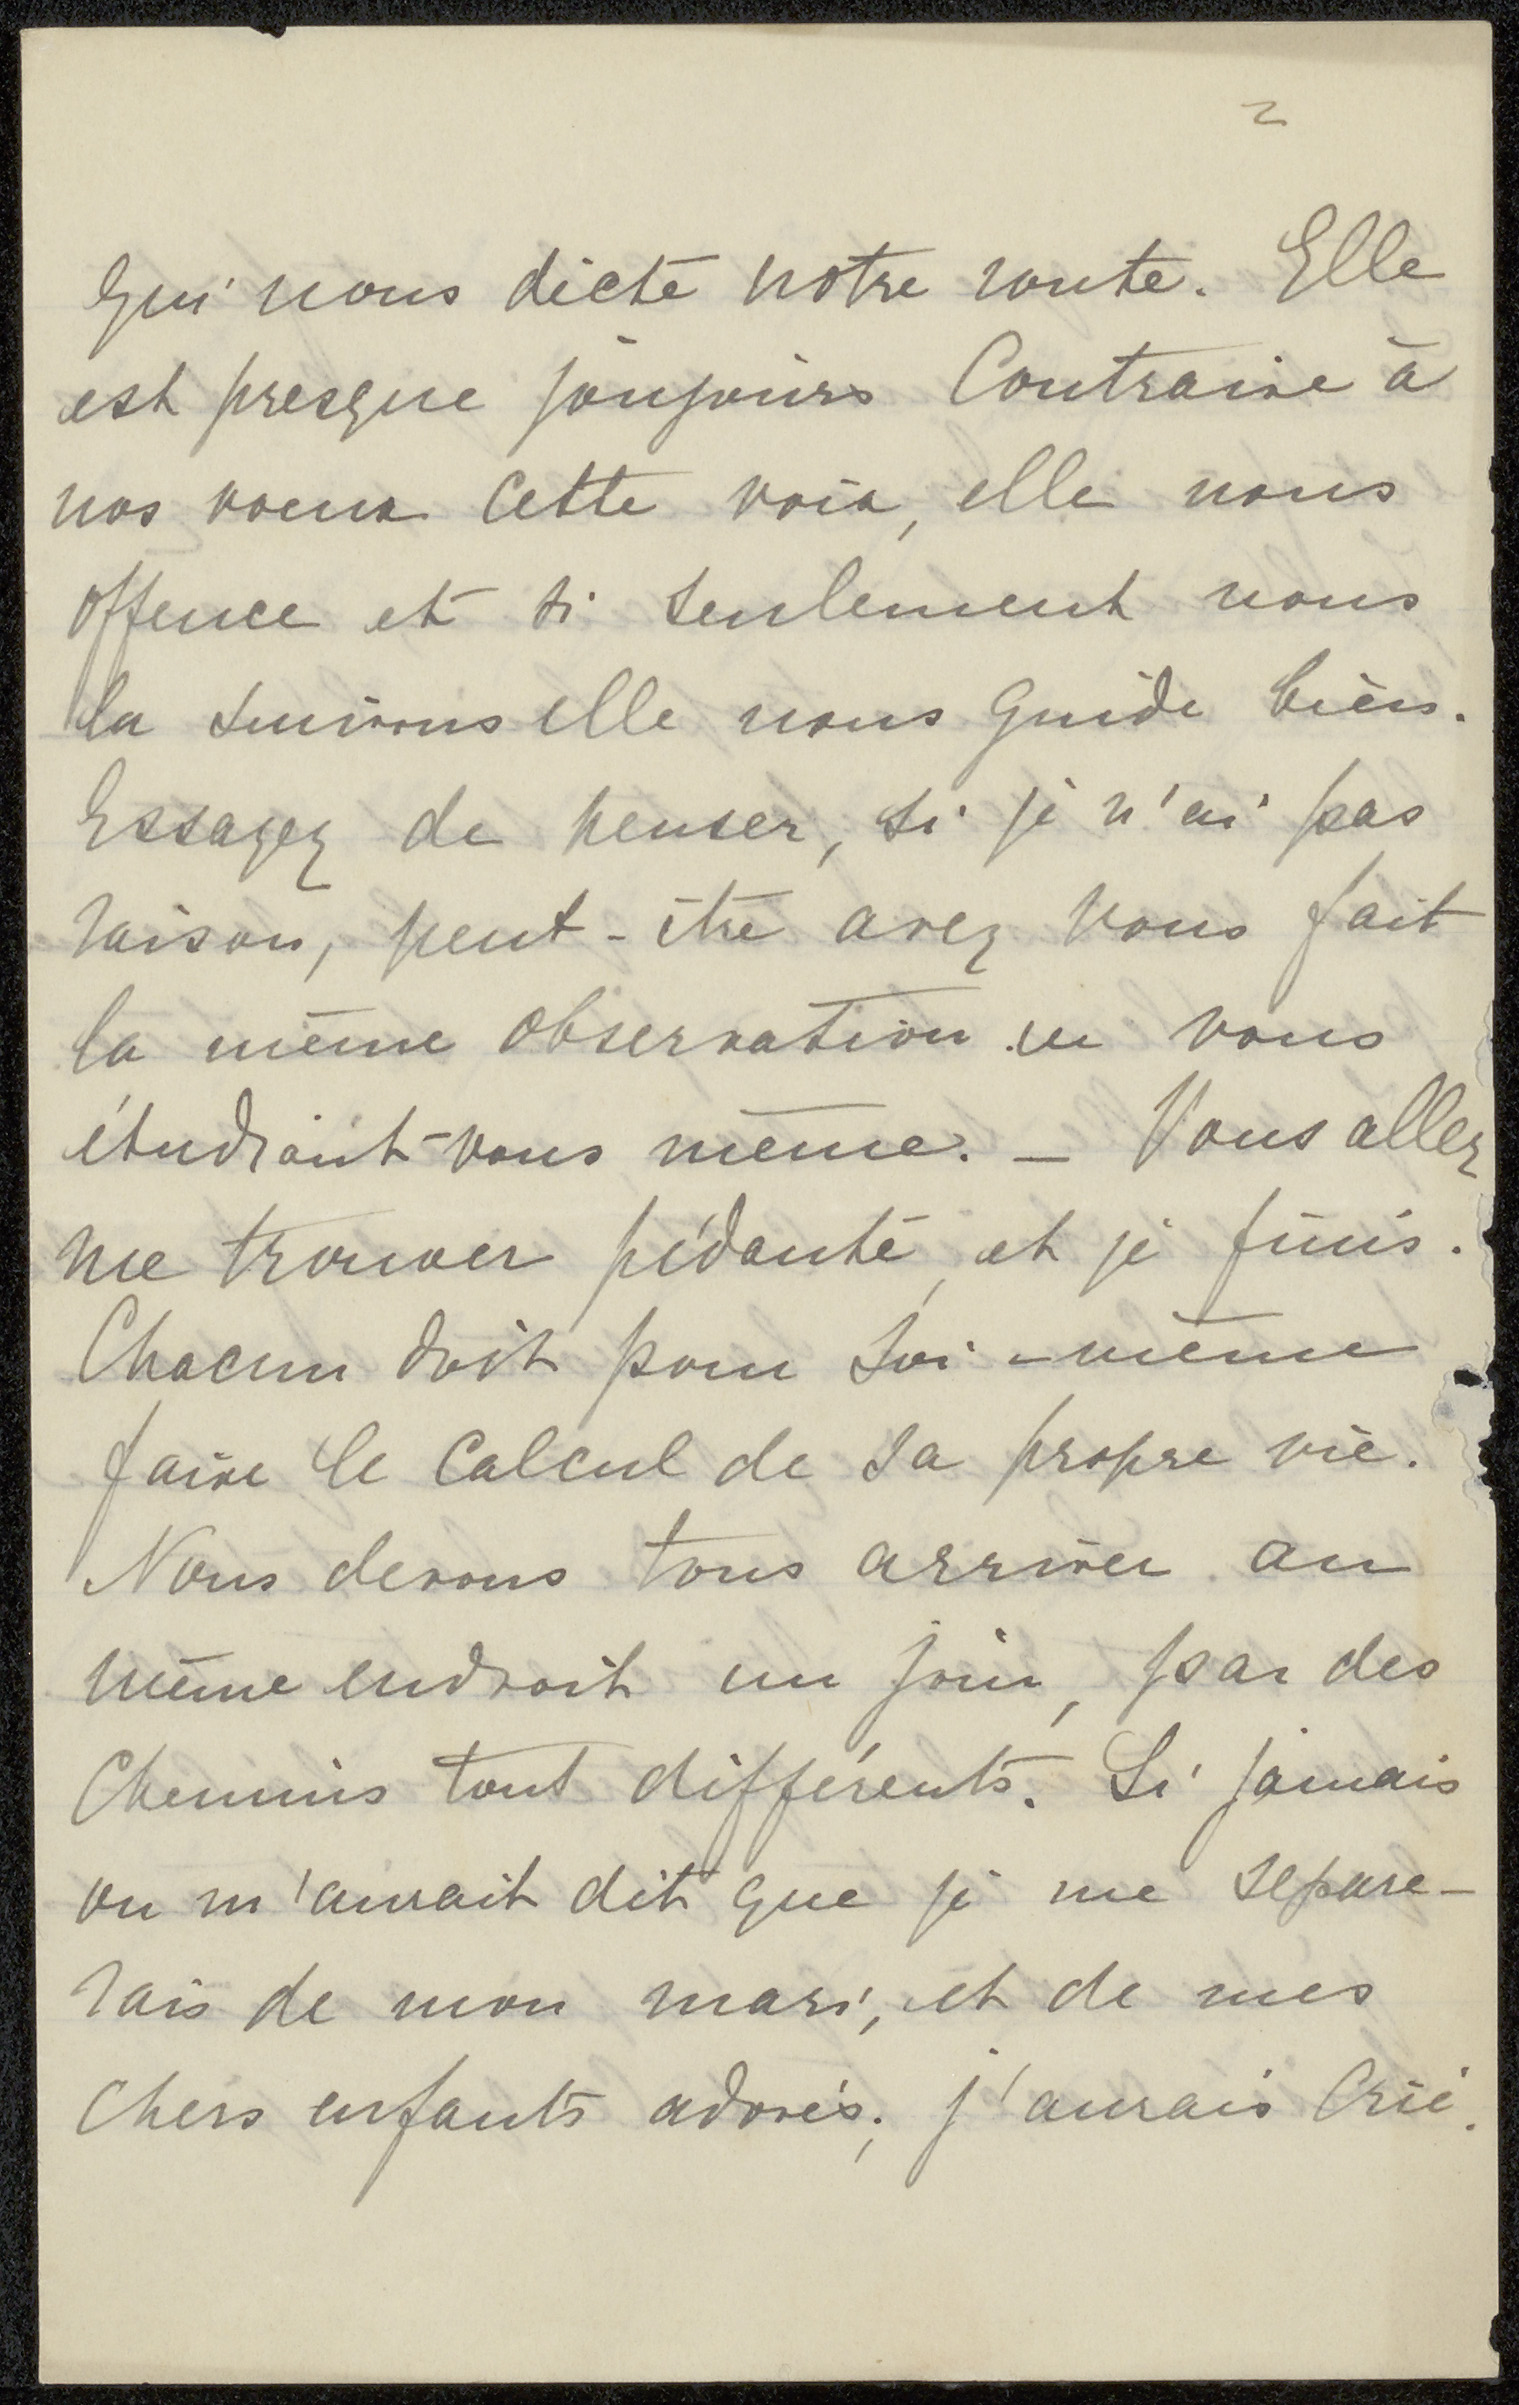 2
qui nous dicte notre route. Elle
est presque joujours Contraire à
nos voeux cette voix, elle nous
offence et si seulement nous
la suivons elle nous guide bien.
Essayez de penser, si je n'ai pas
raison, peut-être avez vous fait
la même observation en vous
étudiant-vous même. — Vous allez
me trouver pédante, et je finis.
Chacun doit pour soi-même
faire le Calcul de sa propre vie.
Nous devons tous arriver au
même endroit un jour, par des
Chemins tout différents. Si jamais
on m'aurait dit que je me sépare-
rais de mon mari, et de mes
Chers enfants adorés; j'aurais Crié.